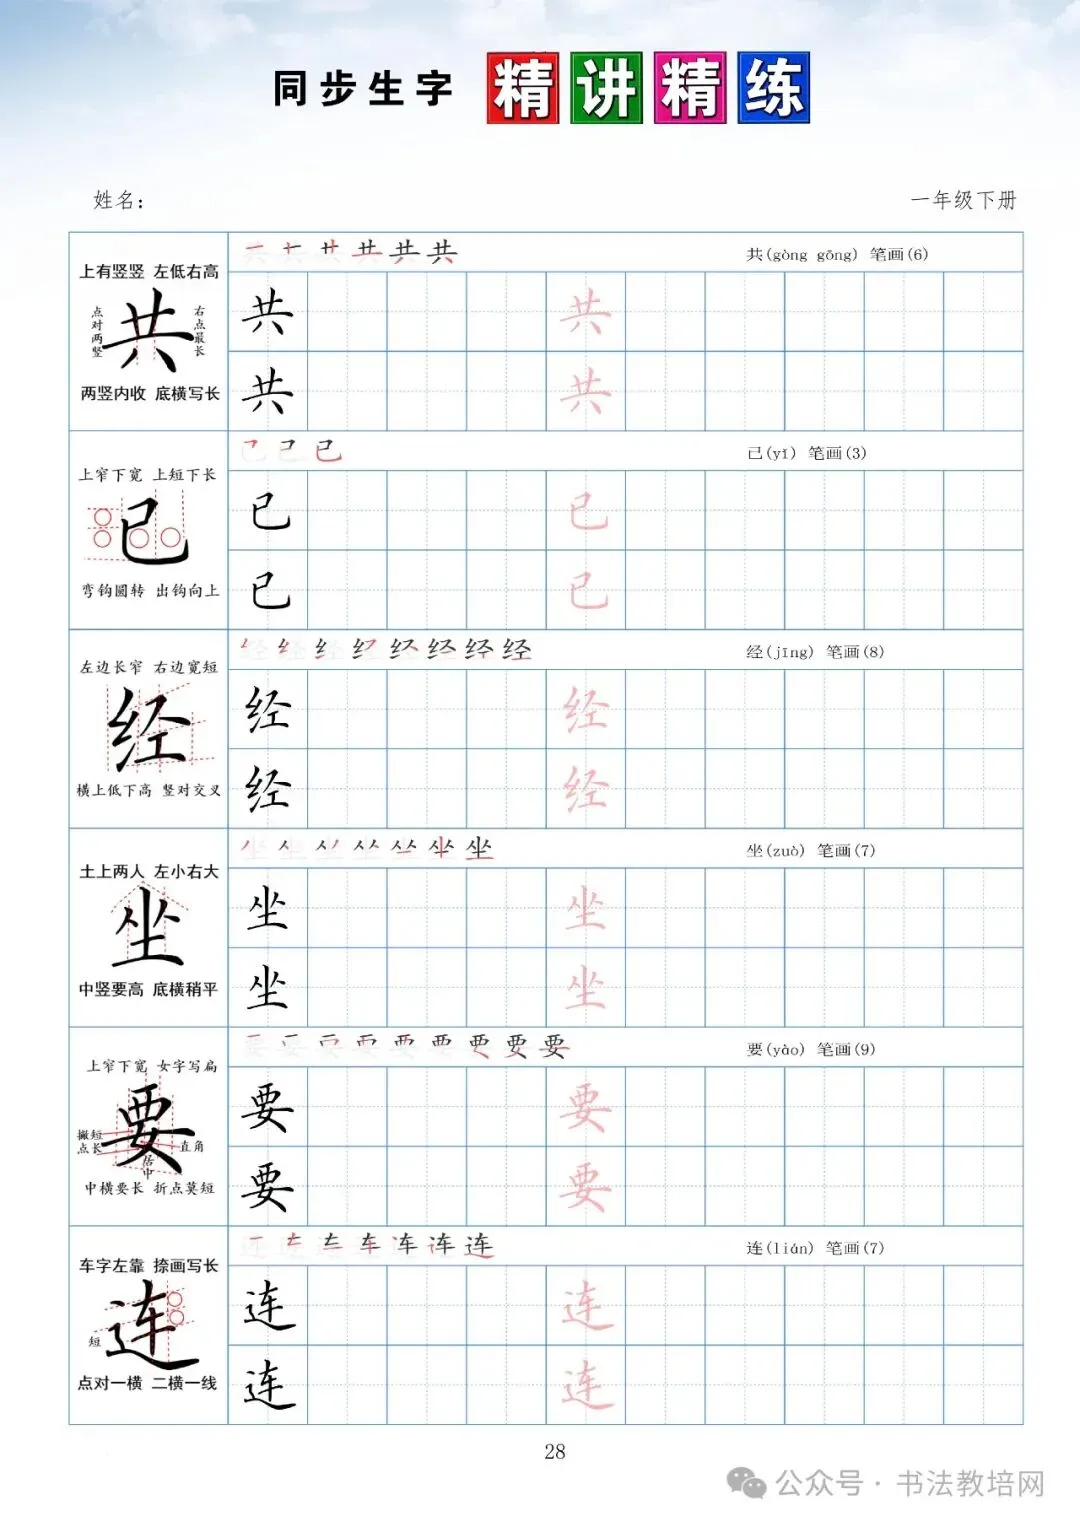 同步生字 精讲精练
姓名：
一年级下册
上有竖竖 左低右高
点对两竖
共
右点最长
两竖内收 底横写长
共(gòng gōng) 笔画(6)
共 共
共 共
上窄下宽 上短下长
已
弯钩圆转 出钩向上
已(yǐ) 笔画(3)
已 已
已 已
左边长窄 右边宽短
经
横上低下高 竖对交叉
经(jīng) 笔画(8)
经 经
经 经
土上两人 左小右大
坐
中竖要高 底横稍平
坐(zuò) 笔画(7)
坐 坐
坐 坐
上窄下宽 女字写扁
撇短
点长
要
直角
居中
中横要长 折点莫短
要(yào) 笔画(9)
要 要
要 要
车字左靠 捺画写长
短
连
点对一横 二横一线
连(lián) 笔画(7)
连 连
连 连
28
公众号·书法教培网